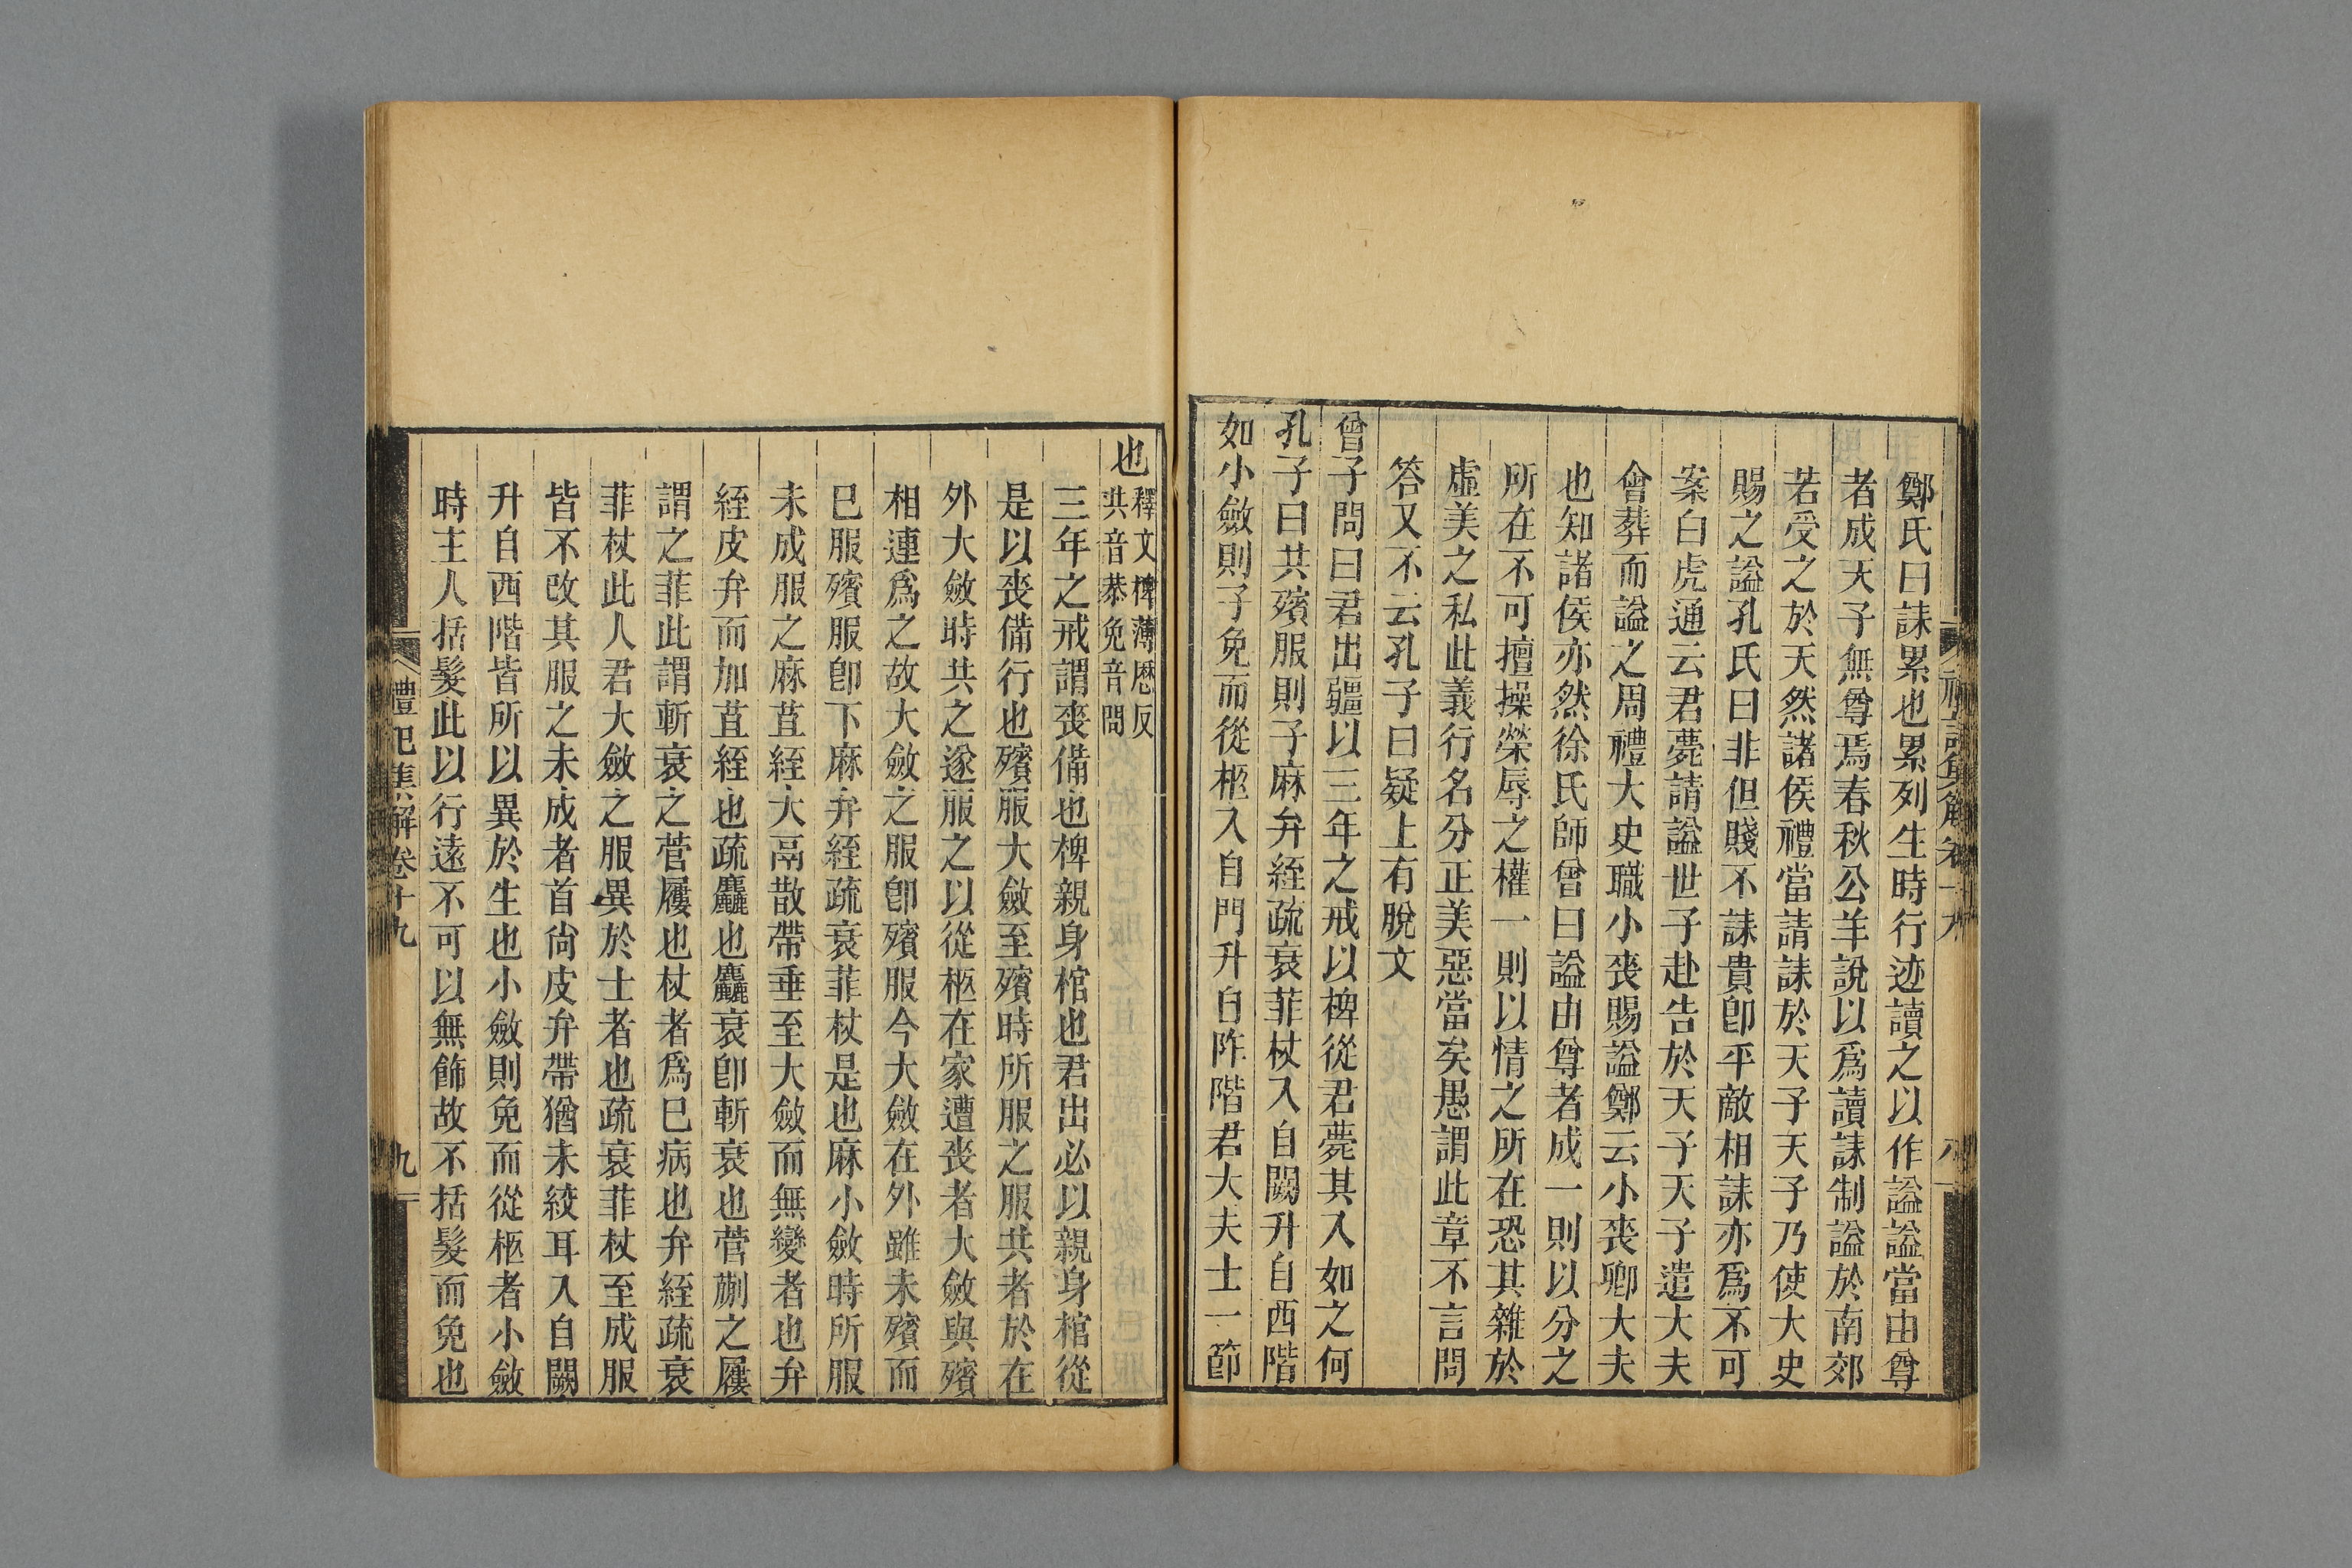 鄭氏曰誄累也累列生時行迹讀之以作謚謚當由尊
者成天子無尊焉春秋公羊說以爲讀誄制謚於南郊
若受之於天然諸侯禮當請誄於天子天子乃使大史
賜之謚孔氏曰非但賤不誄貴卽平敵相誄亦爲不可
案白虎通云君薨請謚世子赴告於天子天子遣大夫
會葬而謚之周禮大史職小喪賜謚鄭云小喪卿大夫
也知諸侯亦然徐氏師曾曰謚由尊者成一則以分之
所在不可擅操榮辱之權一則以情之所在恐其雜於
虛美之私此義行名分正美惡當矣愚謂此章不言問
答又不云孔子曰疑上有脫文
曾子問曰君出疆以三年之戒以椑從君薨其入如之何
孔子曰共殯服則子麻弁絰疏衰菲杖入自闕升自西階
如小斂則子免而從柩入自門升自阼階君大夫士一節
也釋文椑薄厯反
共音恭免音問
三年之戒謂喪備也椑親身棺也君出必以親身棺從
是以喪備行也殯服大斂至殯時所服之服共者於在
外大斂時共之遂服之以從柩在家遭喪者大斂與殯
相連爲之故大斂之服卽殯服今大斂在外雖未殯而
已服殯服卽下麻弁絰疏衰菲杖是也麻小斂時所服
未成服之麻苴絰大鬲散帶垂至大斂而無變者也弁
絰皮弁而加苴絰也疏麤也麤衰卽斬衰也菅蒯之屨
謂之菲此謂斬衰之菅屨也杖者爲已病也弁絰疏衰
菲杖此人君大斂之服異於士者也疏衰菲杖至成服
皆不改其服之未成者首尙皮弁帶猶未絞耳入自闕
升自西階皆所以異於生也小斂則免而從柩者小斂
時主人括髮此以行遠不可以無飾故不括髮而免也
禮記集解卷十九
九